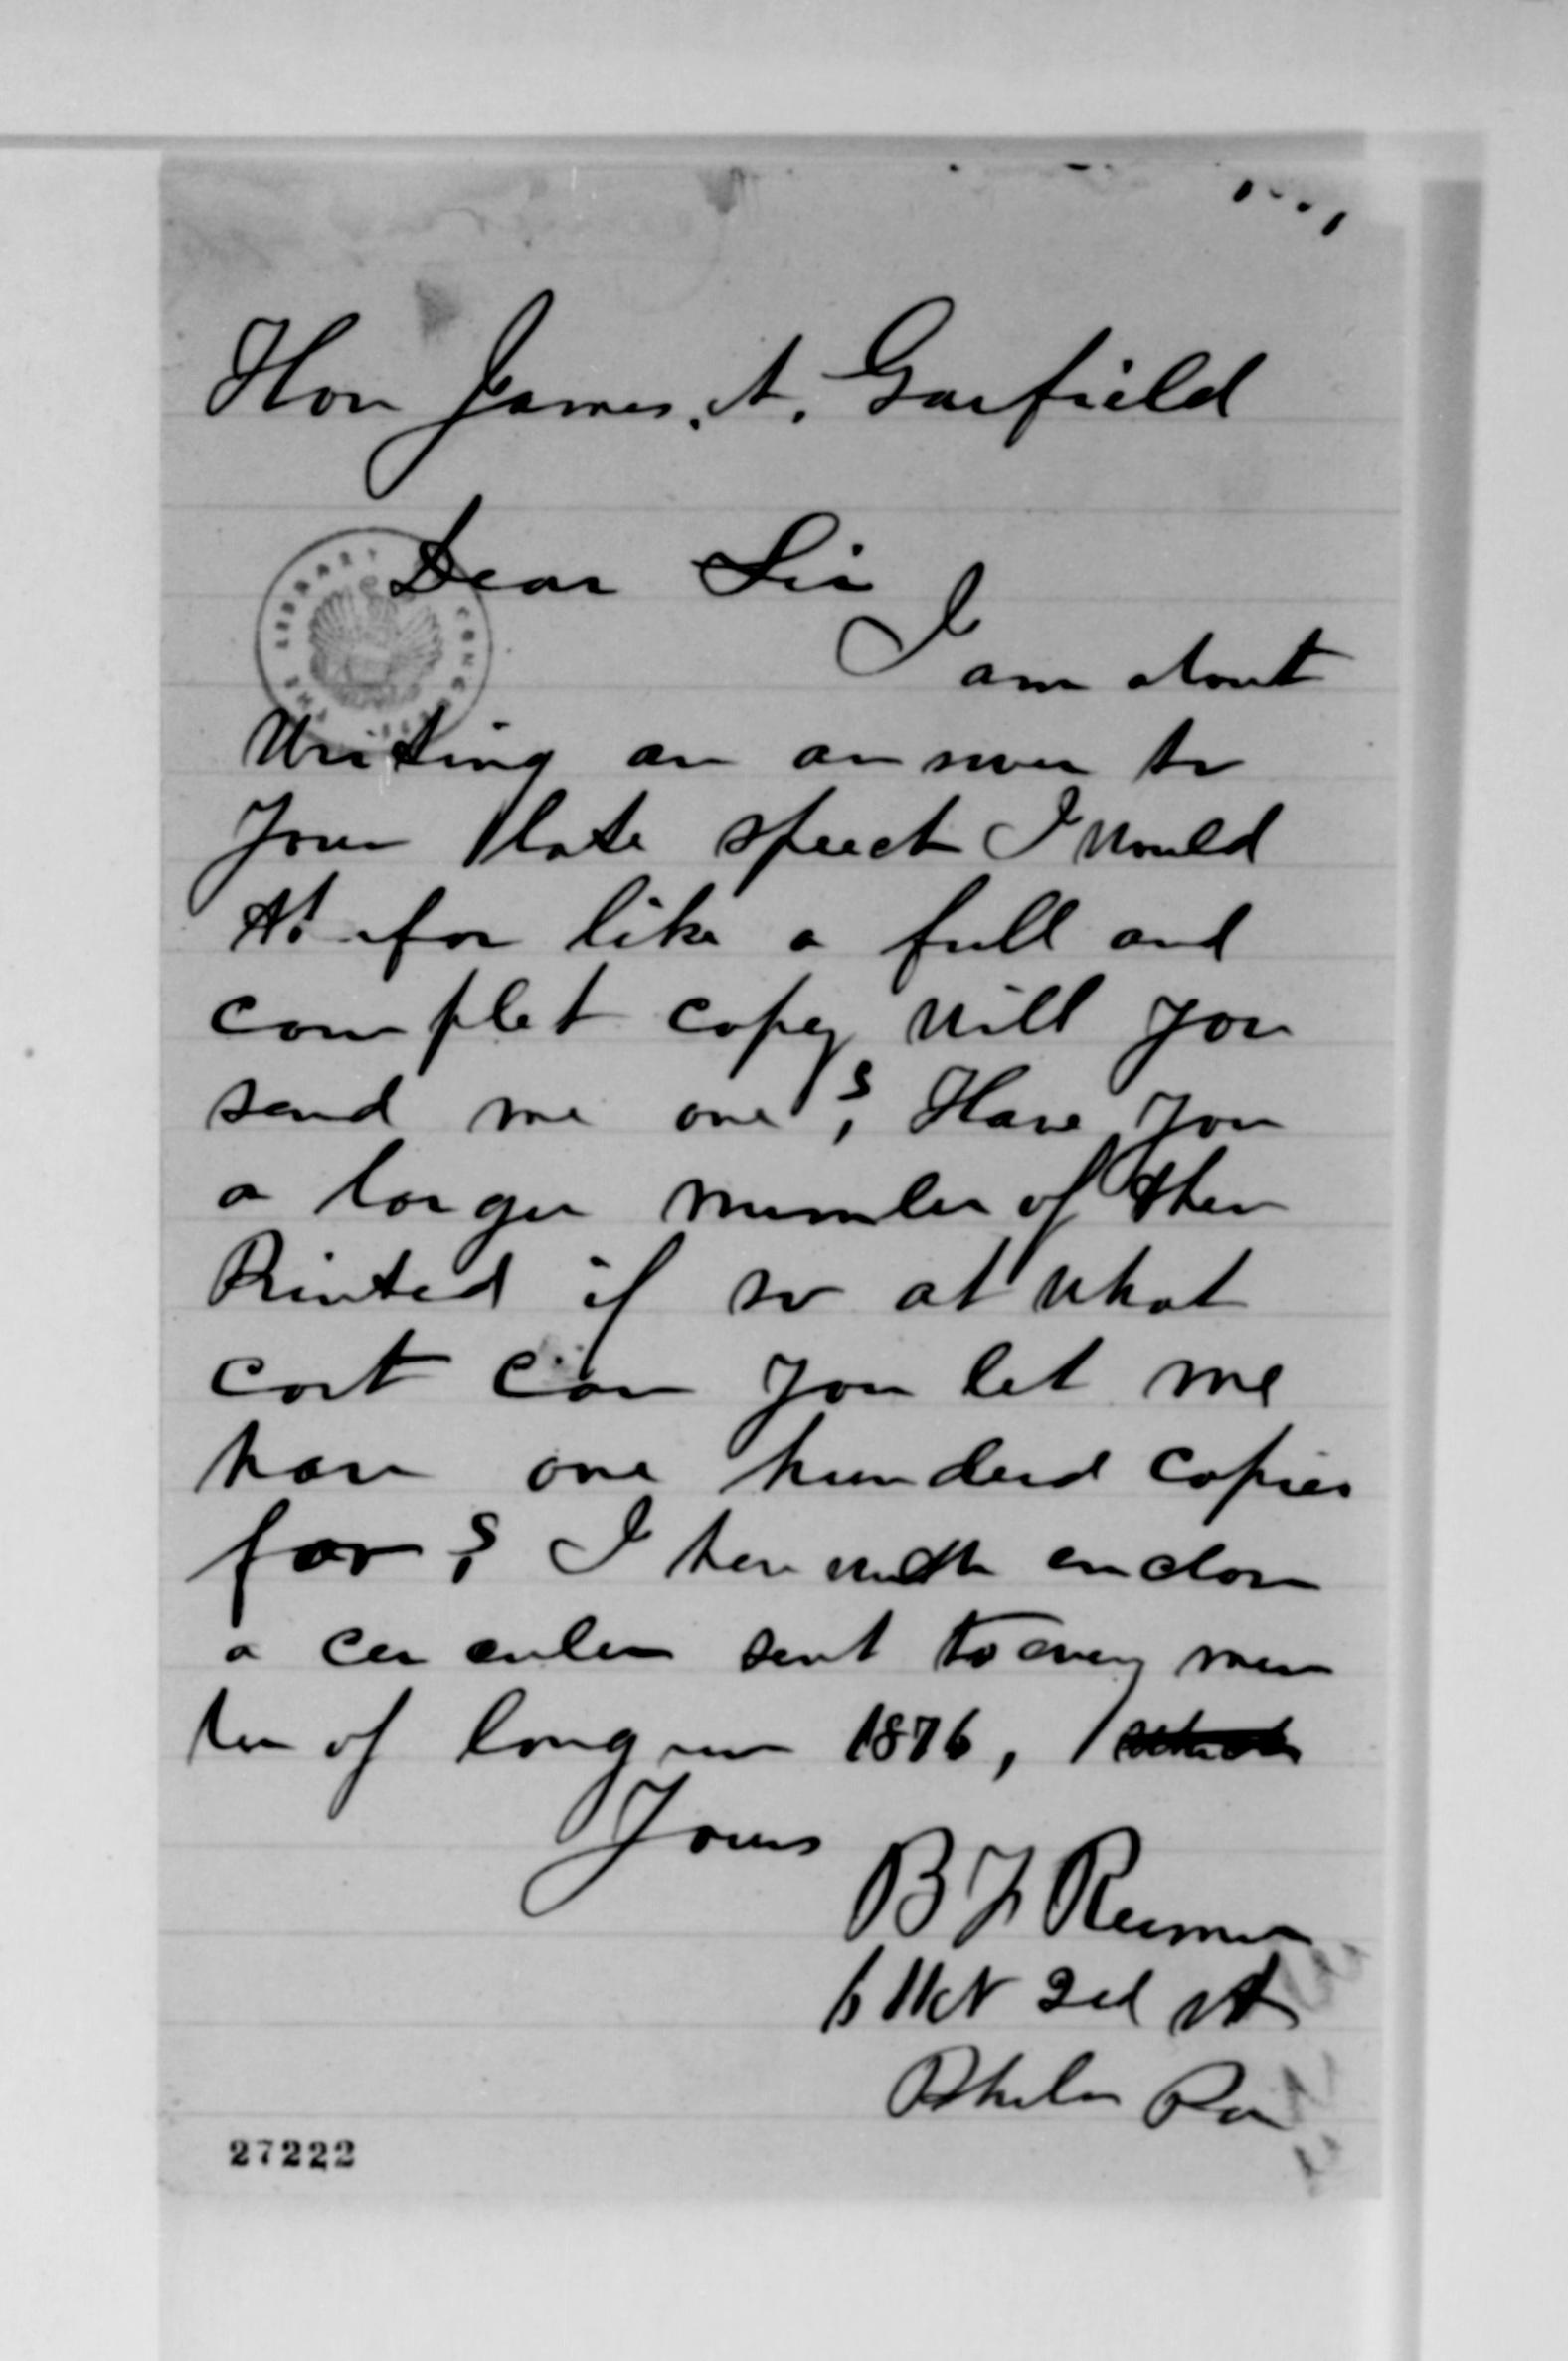 Hon James. A. Garfield
Dear Sir
I am about
Writing an answer to
Your late speech I would
for like a full and
complet copy will you
send me one? Have you
a larger number of them
Printed if so at what
cost can you let me
have one hunderd copies
for? I herewith enclose
a cercular sent to every mem
ber of Congress 1876,
Yours
B F
3rd st
Phila Pa
THE LIBRARY CONGRESS
27222